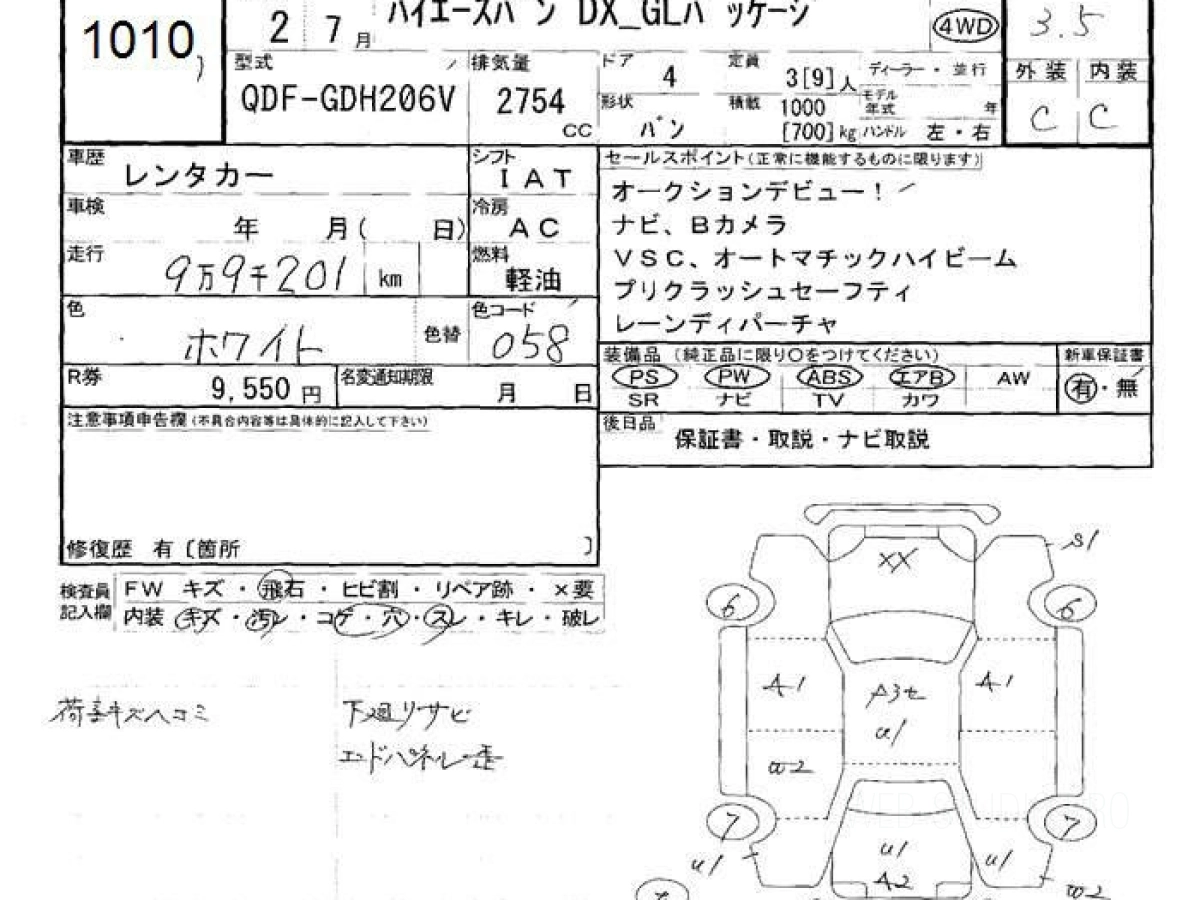 1010
2 7月
ハイエースバン DX_GLパッケージ
4WD
3.5
型式 排気量 ドア 4 定員 3[9]人 ディーラー・並行 外装 内装
QDF-GDH206V 2754 cc
形状 バン 積載 1000 [700]kg モデル年式 年 ハンドル 左・右
C C
車歴 レンタカー
シフト IAT
車検 年 月( 日)
冷房 AC
走行 9万9千201 km
燃料 軽油
色 ホワイト 色替
色コード 058
R券 9,550円 名変通知期限 月 日
セールスポイント(正常に機能するものに限ります)
オークションデビュー!
ナビ、Bカメラ
VSC、オートマチックハイビーム
プリクラッシュセーフティ
レーンディパーチャ
装備品 (純正品に限り○をつけてください) 新車保証書
PS PW ABS エアB AW 有・無
SR ナビ TV カワ
後日品 保証書・取説・ナビ取説
注意事項申告欄(不具合内容等は具体的に記入して下さい)
修復歴 有〔箇所 〕
検査員記入欄
FW キズ・飛石・ヒビ割・リペア跡・×要
内装 キズ・汚レ・コゲ・穴・スレ・キレ・破レ
下廻リサビ
エドパネル歪
S1
XX
6 6
A1 A1
A3
U1
W2
7 7
U1 U1 U1
A2
W2